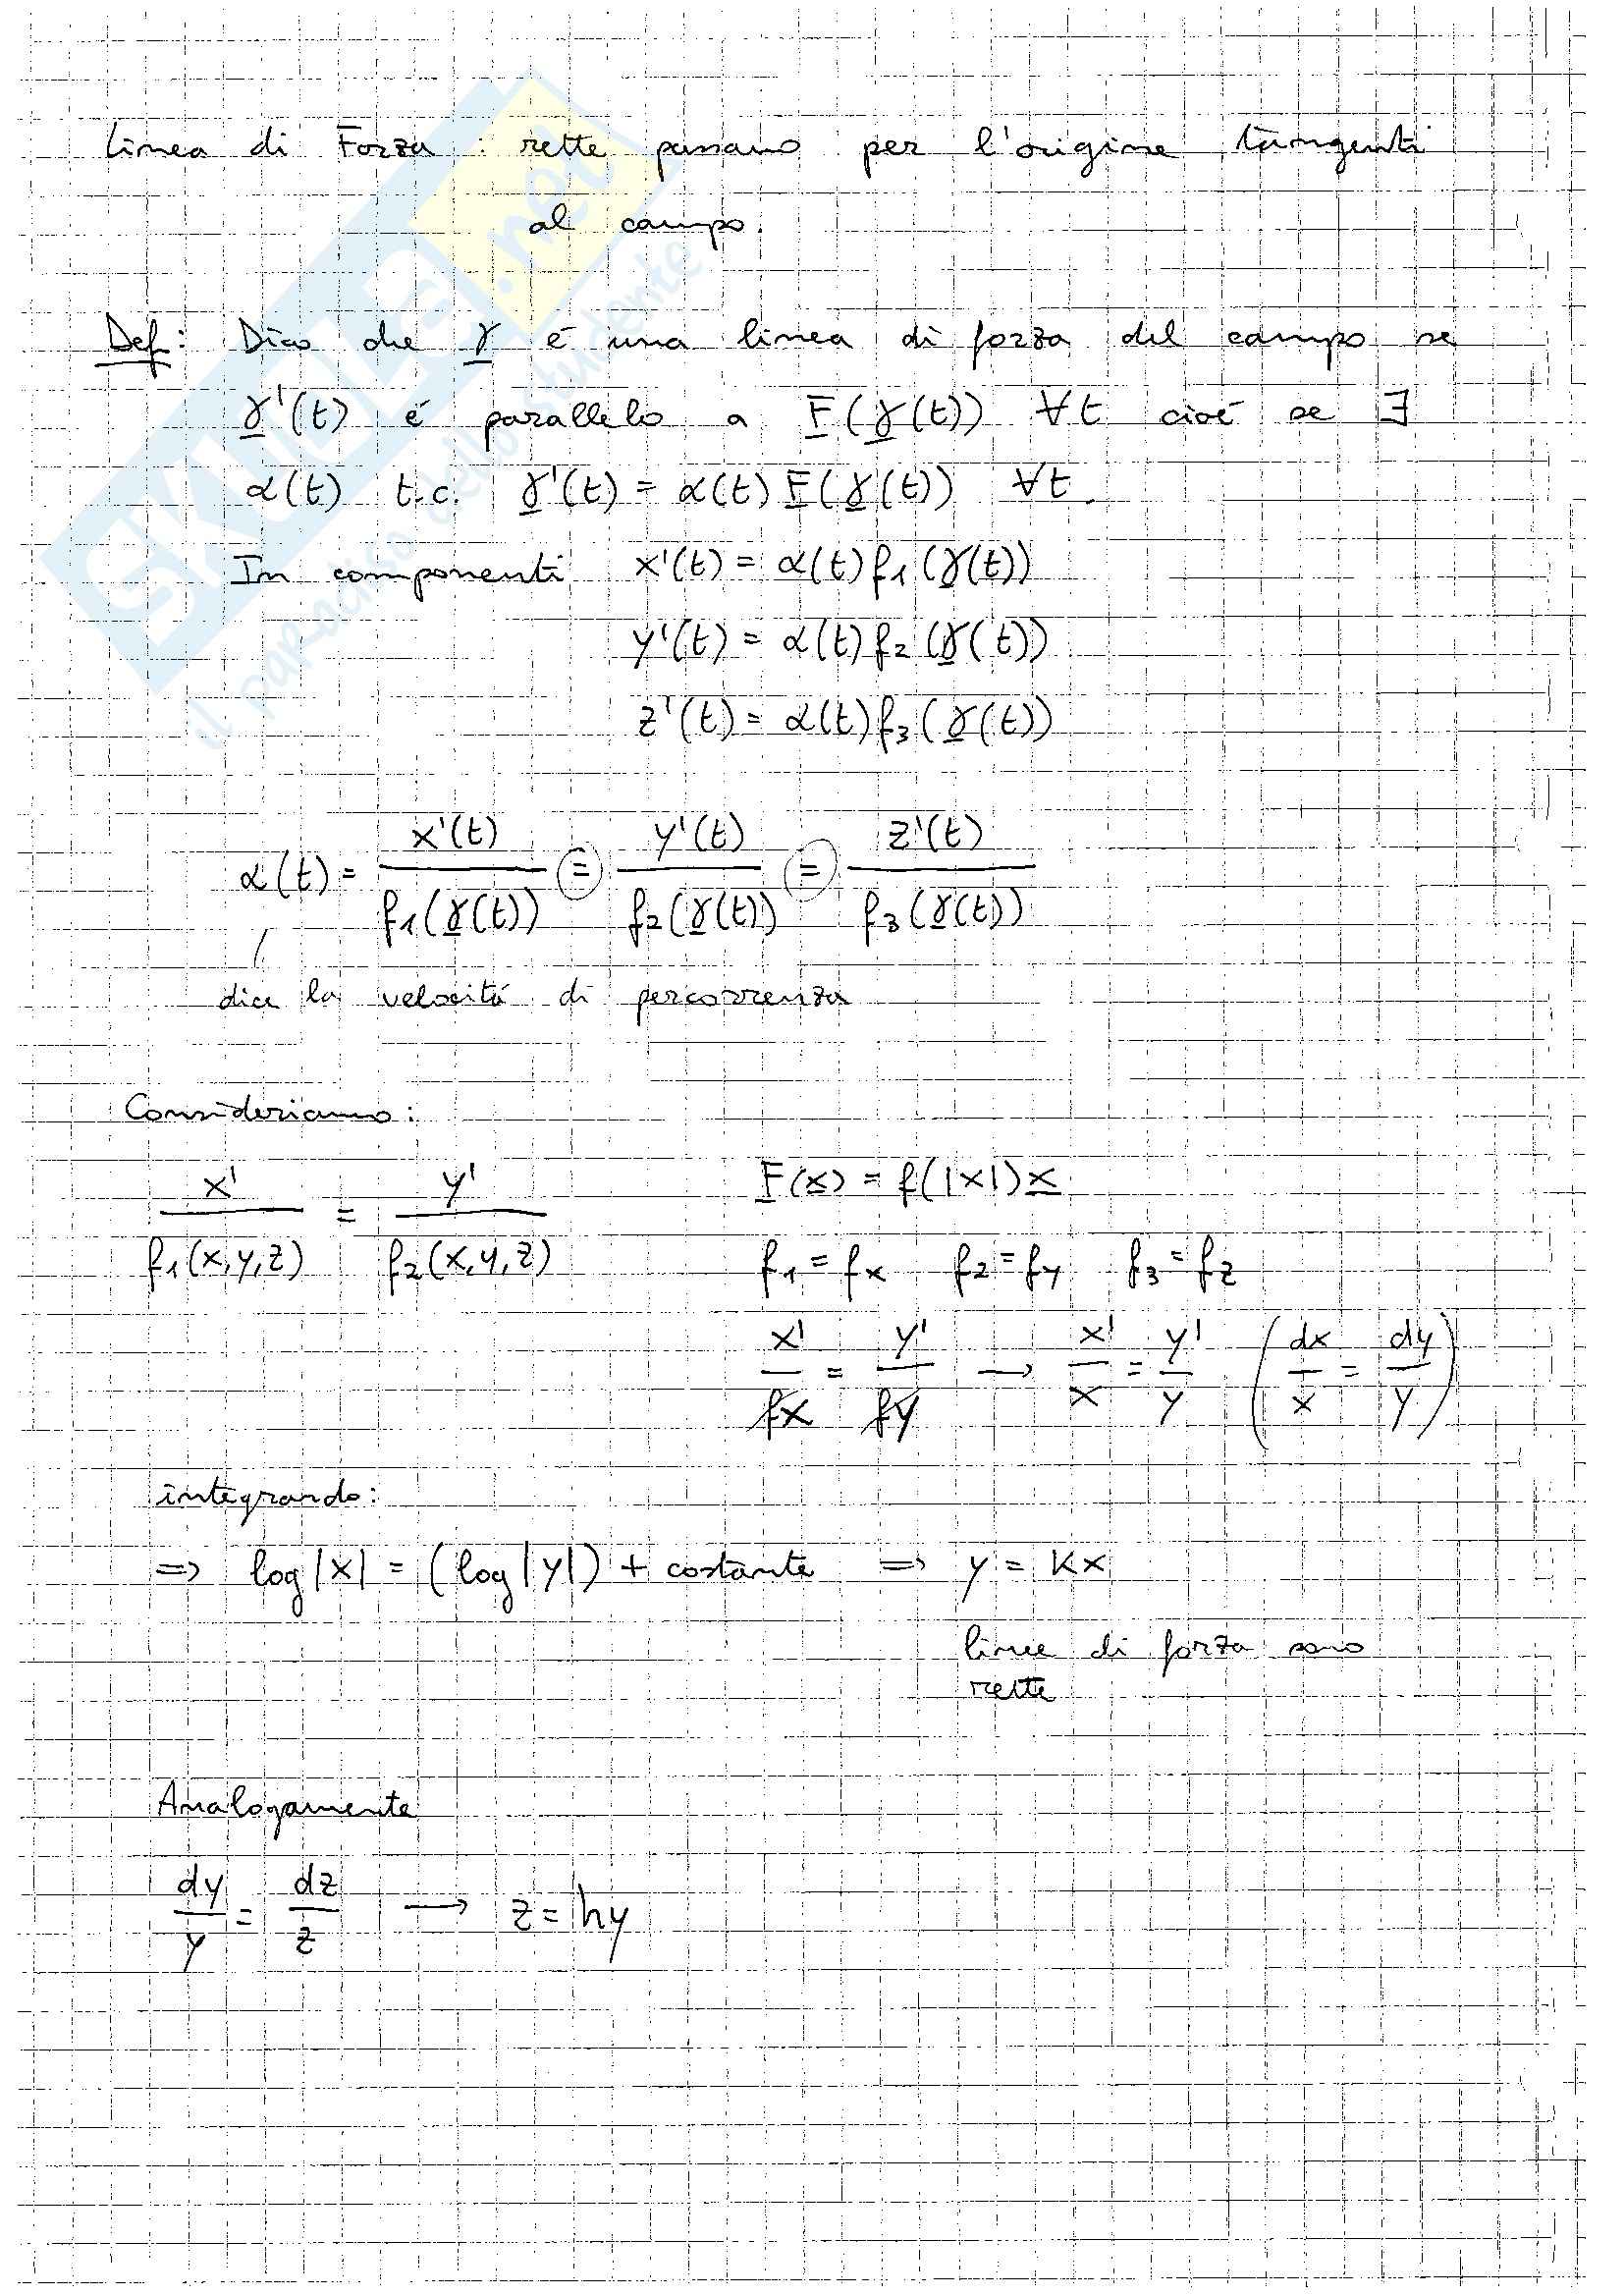 Linea di Forza : rette passano per l'origine tangenti
al campo.
Def: Dico che γ é una linea di forza del campo se
γ'(t) é parallelo a F(γ(t)) ∀t cioé se ∃
α(t) t.c. γ'(t) = α(t) F(γ(t)) ∀t.
In componenti x'(t) = α(t) f₁(γ(t))
y'(t) = α(t) f₂(γ(t))
z'(t) = α(t) f₃(γ(t))
α(t) = x'(t) / f₁(γ(t)) = y'(t) / f₂(γ(t)) = z'(t) / f₃(γ(t))
dice la velocitá di percorrenza
Consideriamo:
x' / f₁(x,y,z) = y' / f₂(x,y,z) F(x) = f(|x|)x
f₁ = fx f₂ = fy f₃ = fz
x' / fx = y' / fy → x' / x = y' / y (dx / x = dy / y)
integrando:
=> log|x| = (log|y|) + costante => y = Kx
linee di forza sono
rette
Analogamente
dy / y = dz / z → z = hy
SKUOLA.net
il paradiso dello studente